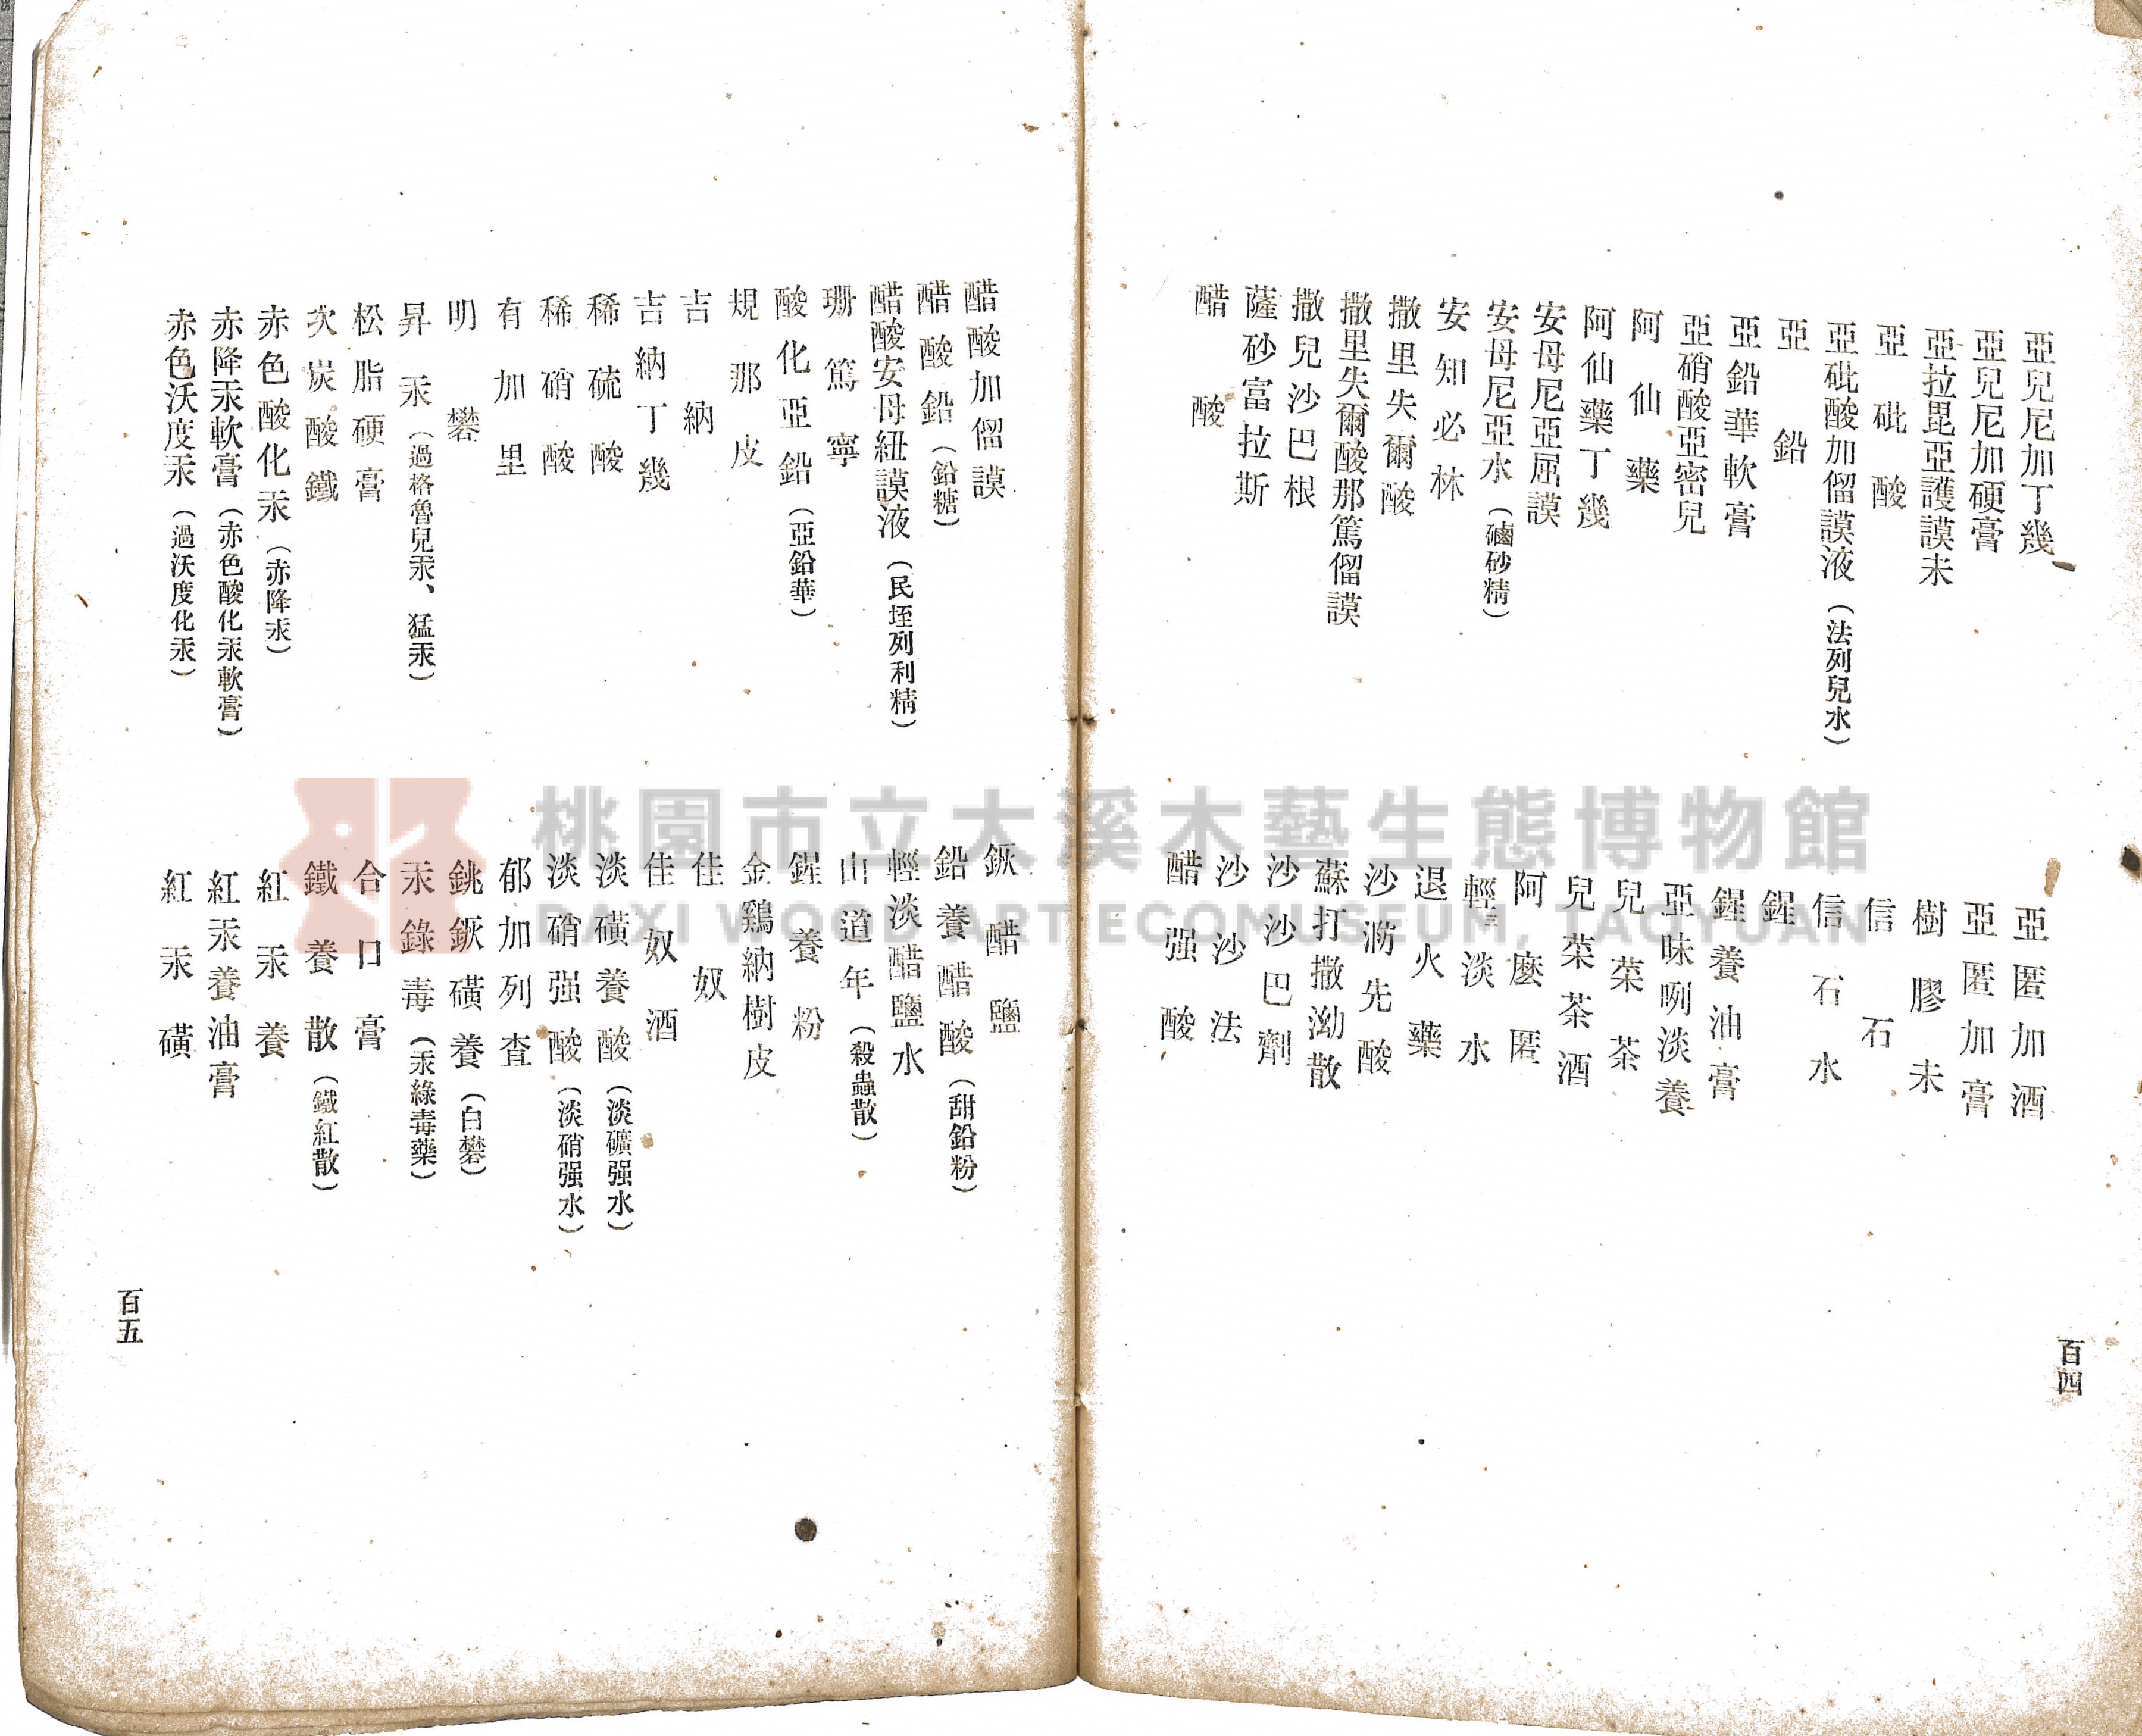 亞兒尼加丁幾
亞兒尼加硬膏
亞拉毘亞護謨末
亞砒酸
亞砒酸加㑶謨液(法列兒水)
亞鉛
亞鉛華軟膏
亞硝酸亞密兒
阿仙藥
阿仙藥丁幾
安母尼亞屈謨
安母尼亞水(磠砂精)
安知必林
撒里失爾酸
撒里失爾酸那篤㑶謨
撒兒沙巴根
薩砂富拉斯
醋酸
亞匿加酒
亞匿加膏
樹膠末
信石
信石水
鋅
鋅養油膏
亞味唎淡養
兒茶酒
阿麼匿
輕三淡水
退火藥
沙𣿬先酸
蘇打撒泑散
沙沙巴劑
沙沙法
醋强酸
百四
醋酸加㑶謨
醋酸鉛(鉛糖)
醋酸安母紐謨液(民垤列利精)
珊篤寧
酸化亞鉛(亞鉛華)
規那皮
吉納
吉納丁幾
稀硫酸
稀硝酸
有加里
明礬
昇汞(過格魯兒汞、猛汞)
松脂硬膏
次炭酸鐵
赤色酸化汞(赤降汞)
赤降汞軟膏(赤色酸化汞軟膏)
赤色沃度汞(過沃度化汞)
鉛養醋酸(甜鉛粉)
輕淡醋鹽水
山道年(殺蟲散)
鋅養粉
金鷄納樹皮
佳奴
佳奴酒
淡磺養酸(淡礦强水)
淡硝强酸(淡硝强水)
郁加列查
汞綠毒(汞綠毒藥)
合口膏
鐵養散(鐵紅散)
紅汞養
紅汞養油膏
紅汞磺
百五
桃園市立大溪木藝生態博物館
DAXI WOOD ART ECOMUSEUM, TAOYUAN